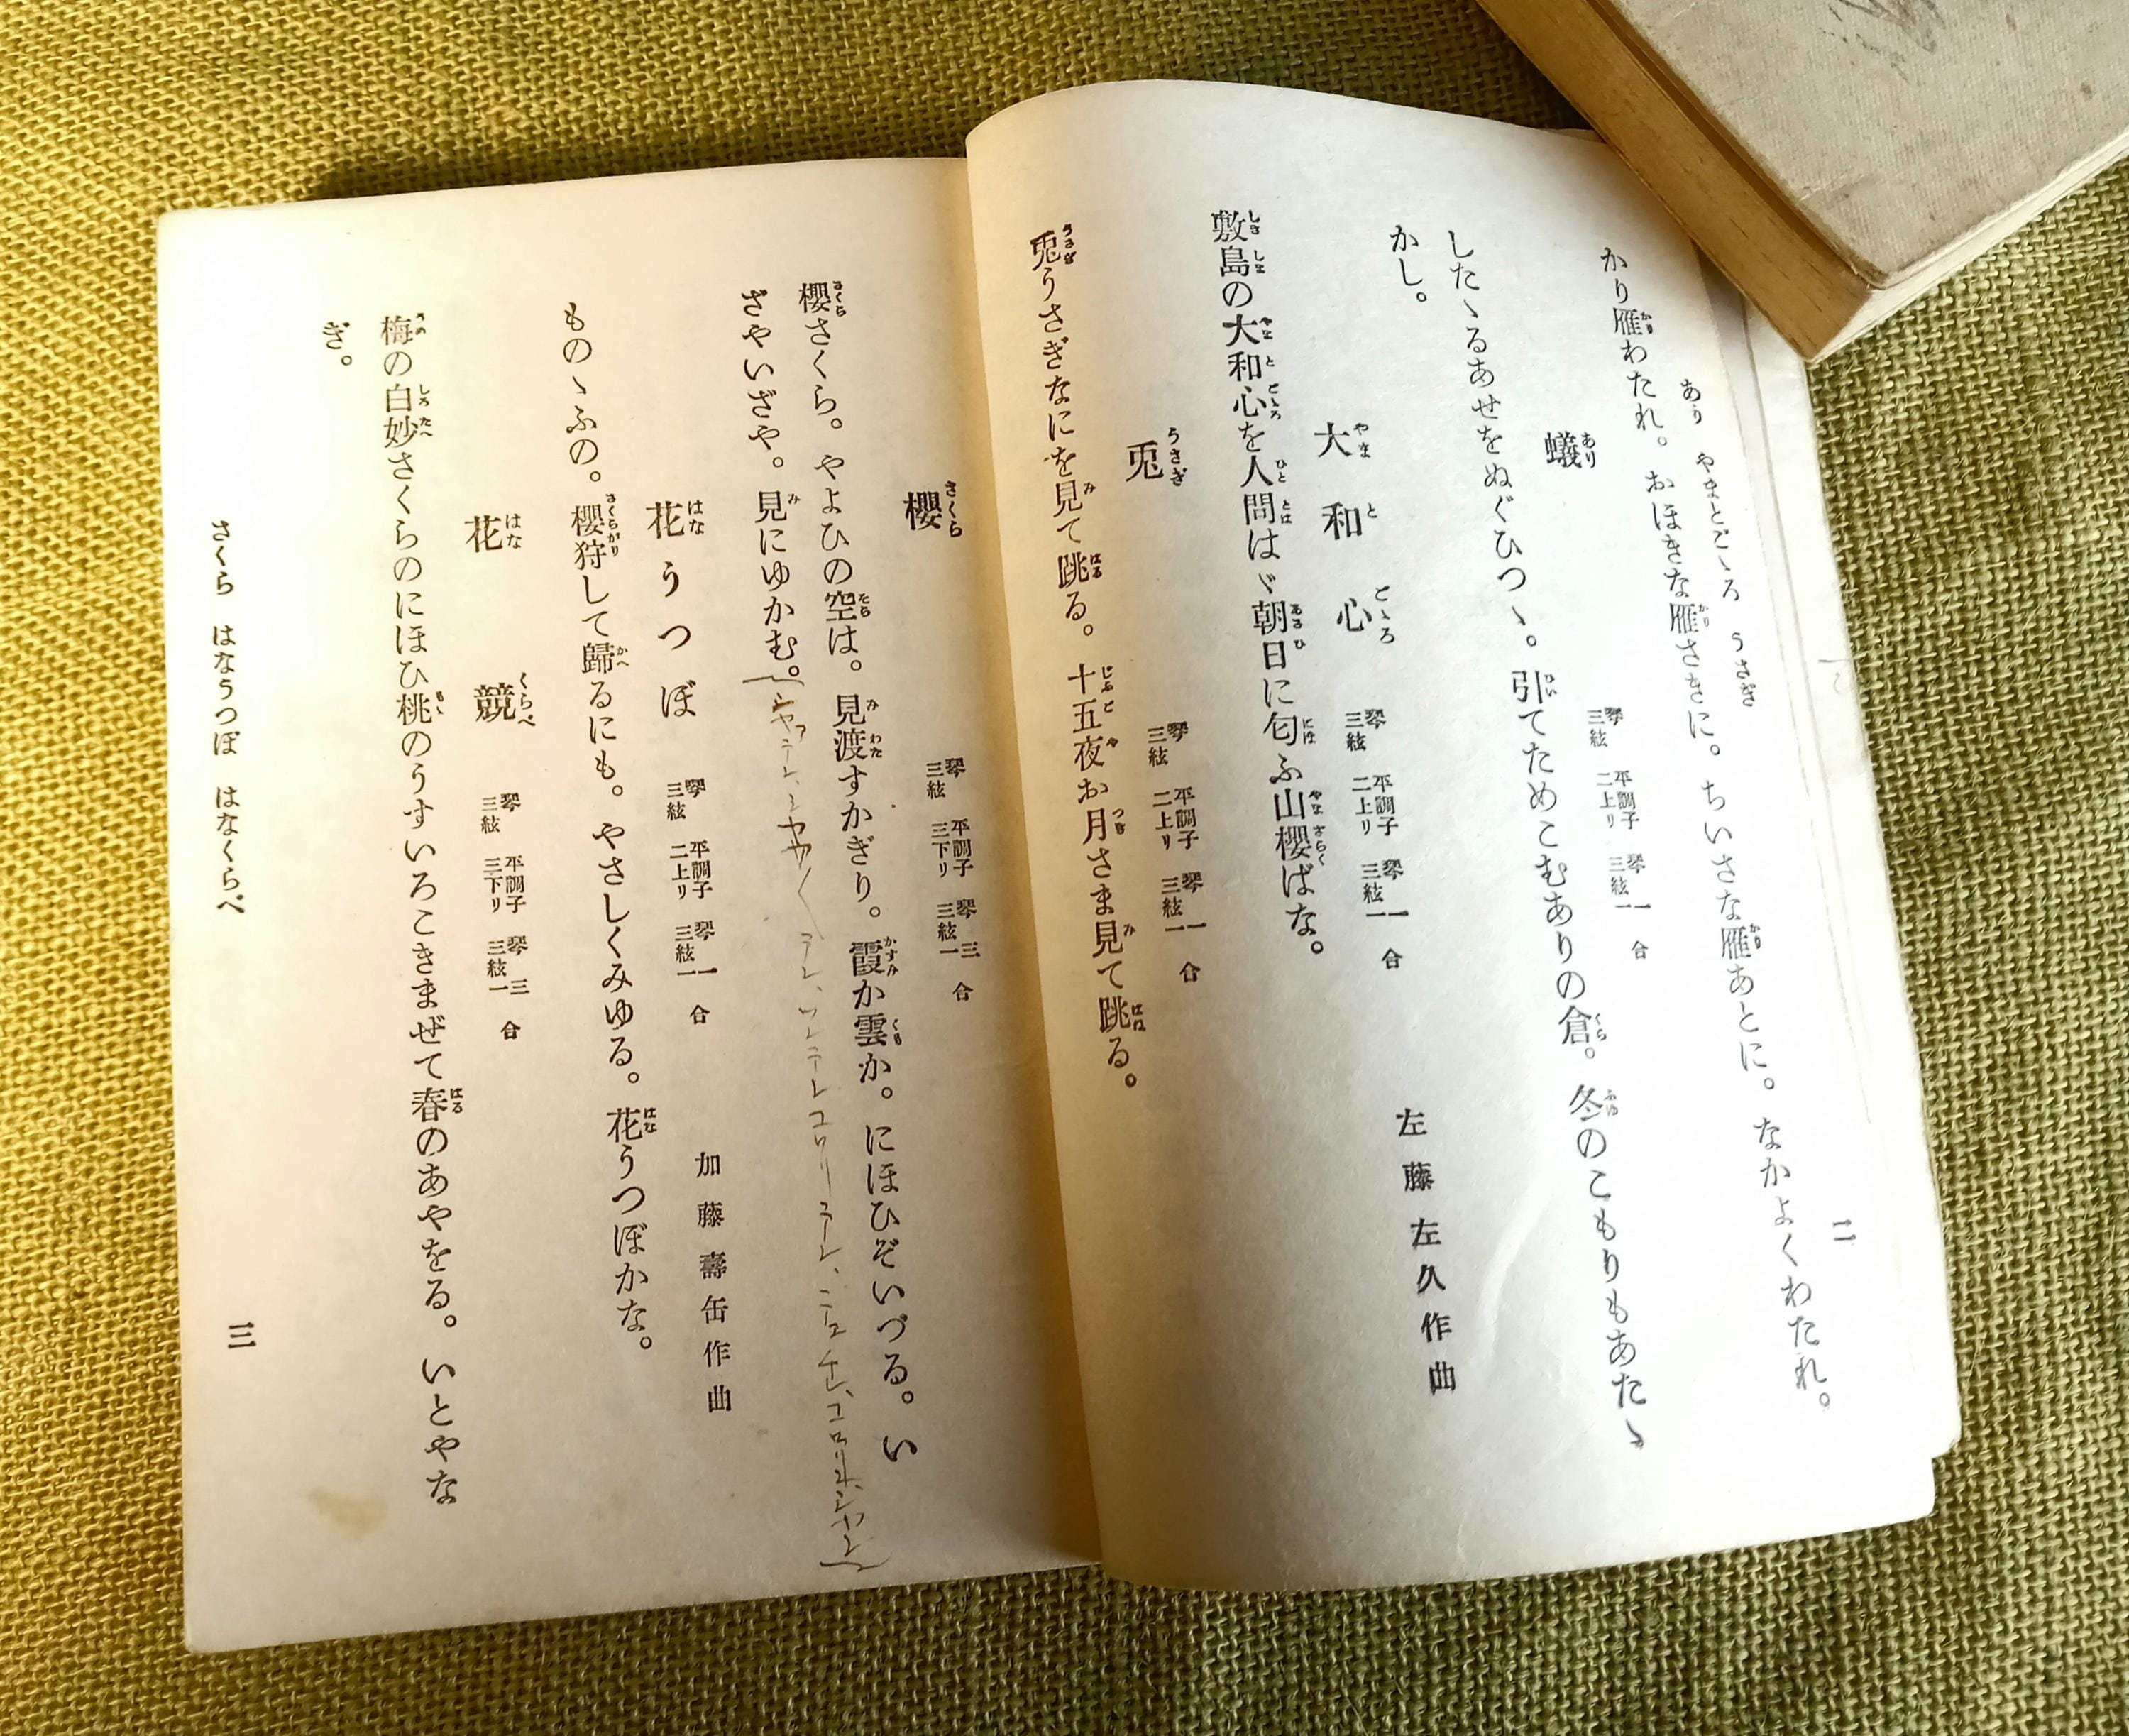 あり　やまとごゝろ　うさぎ　二
かり雁わたれ。おほきな雁さきに。ちいさな雁あとに。なかよくわたれ。
蟻　琴三絃　平調子二上リ　琴一三絃一　合
したゝるあせをぬぐひつゝ。引てためこむありの倉。冬のこもりもあたゝ
かし。
大和心　琴三絃　平調子二上リ　琴一三絃一　合　左藤左久作曲
敷島の大和心を人問はゞ朝日に匂ふ山櫻ばな。
兎　琴三絃　平調子二上リ　琴一三絃一　合
兎うさぎなにを見て跳る。十五夜お月さま見て跳る。
櫻　琴三絃　平調子三下リ　琴三三絃一　合
櫻さくら。やよひの空は。見渡すかぎり。霞か雲か。にほひぞいづる。い
ざやいざや。見にゆかむ。
花うつぼ　琴三絃　平調子二上リ　琴一三絃一　合　加藤壽缶作曲
ものゝふの。櫻狩して歸るにも。やさしくみゆる。花うつぼかな。
花競　琴三絃　平調子三下リ　琴三三絃一　合
梅の白妙さくらのにほひ桃のうすいろこきまぜて春のあやをる。いとやな
ぎ。
さくら　はなうつぼ　はなくらべ　三